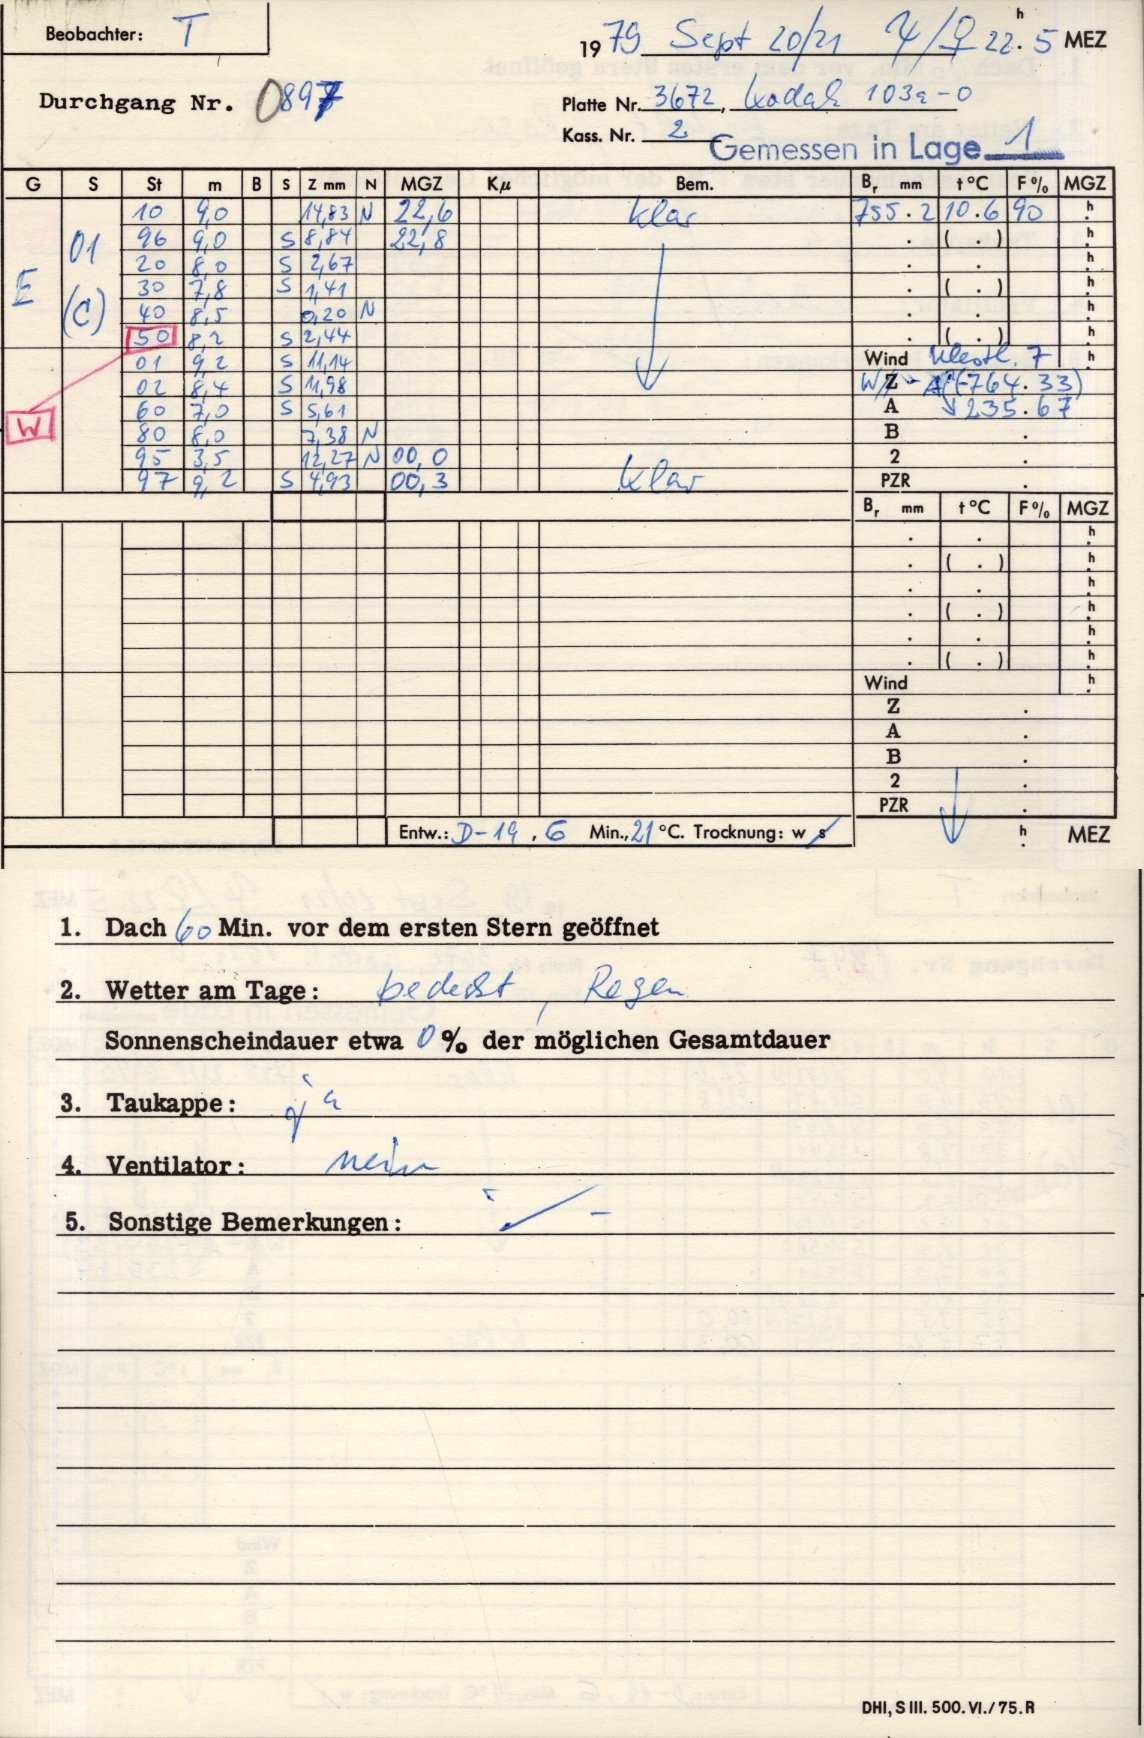 Beobachter: T
1979 Sept 20/21 ♃/♀ 22.5 h MEZ
Durchgang Nr. 0897
Platte Nr. 3672, Kodak 103a-O
Kass. Nr. 2
Gemessen in Lage 1
G S St m B S Z mm N MGZ Kμ Bem. Br mm t °C F% MGZ
10 9,0 14,83 N 22,6 klar 755.2 10.6 90 h
01 96 9,0 S 8,84 22,8 . ( . ) h
20 8,0 S 2,67 . . h
E 30 7,8 S 1,41 . ( . ) h
(C) 40 8,5 0,20 N . . h
50 8,2 S 2,44 . ( . ) h
01 9,2 S 11,14 Wind 7 h
02 8,4 S 11,98 Z (-764.33)
W 60 7,0 S 5,61 A 235.67
80 8,0 7,38 N B .
95 3,5 12,27 N 00,0 2 .
97 9,2 S 4,93 00,3 klar PZR .
Br mm t °C F% MGZ
. . h
. ( . ) h
. . h
. ( . ) h
. . h
. ( . ) h
Wind h
Z .
A .
B .
2 .
PZR .
Entw.: D-19, 6 Min., 21 °C. Trocknung: w s h MEZ
1. Dach 60 Min. vor dem ersten Stern geöffnet
2. Wetter am Tage: bedeckt, Regen
Sonnenscheindauer etwa 0 % der möglichen Gesamtdauer
3. Taukappe: ja
4. Ventilator: nein
5. Sonstige Bemerkungen: –
DHI, S III. 500. VI./75. R